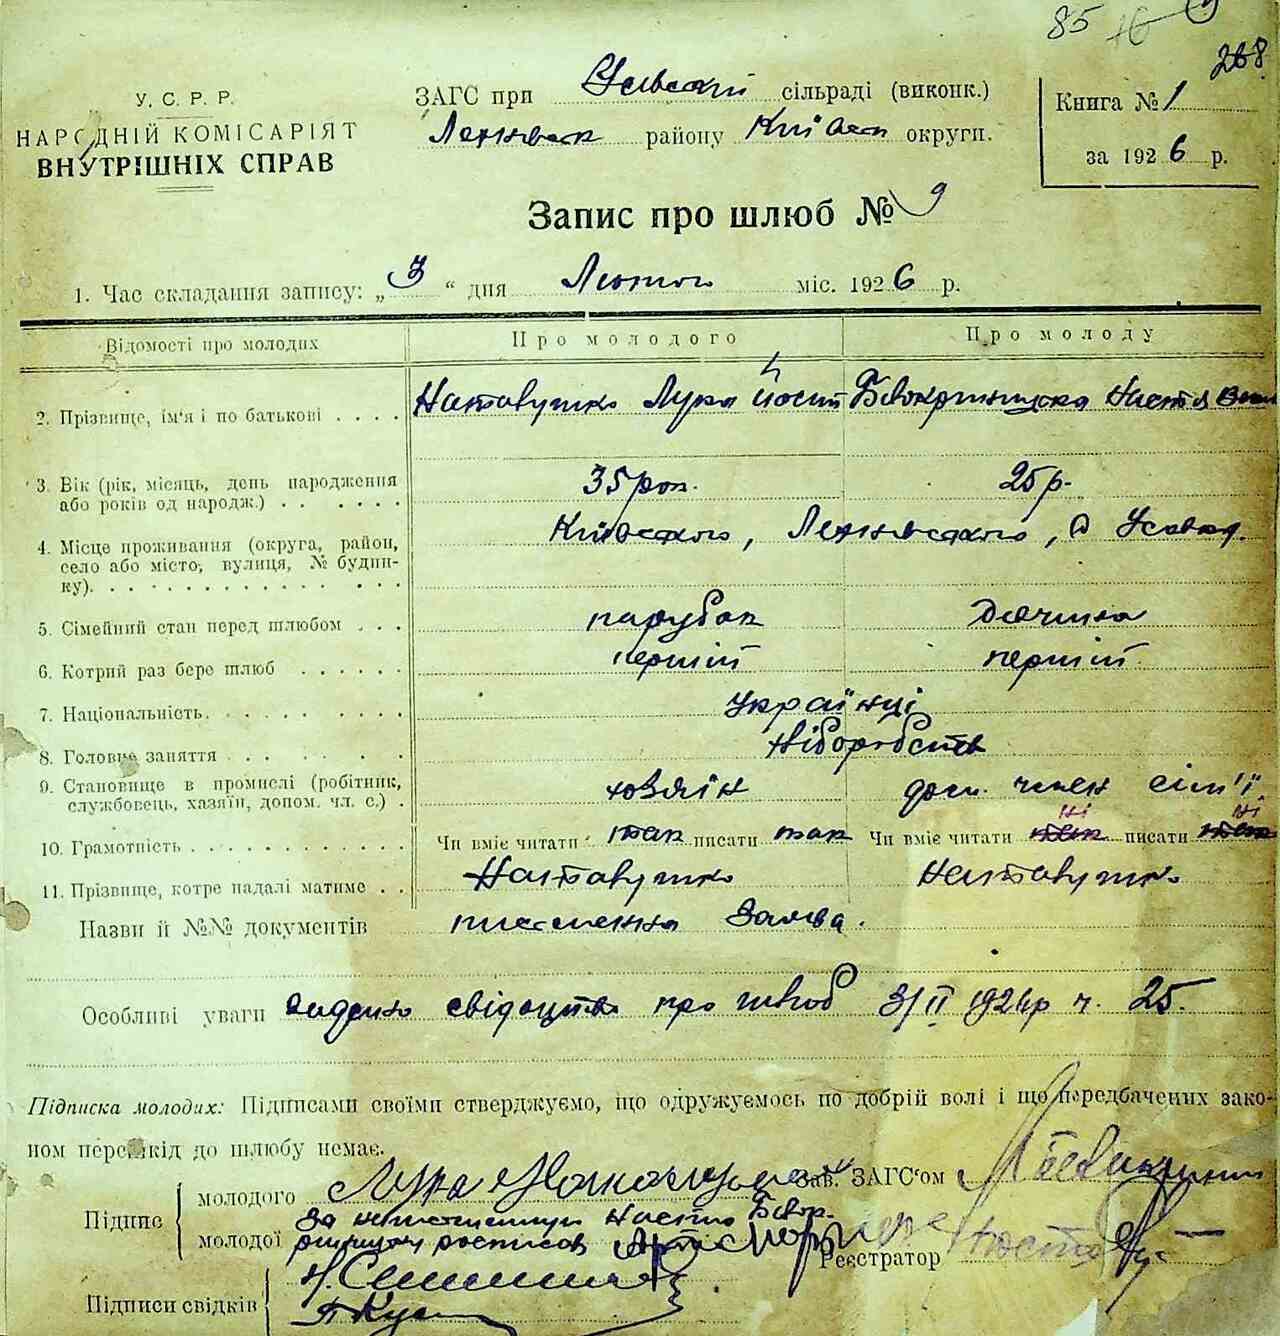 85 16
268
У. С. Р. Р.
НАРОДНІЙ КОМІСАРІЯТ
ВНУТРІШНІХ СПРАВ
ЗАГС при сільраді (виконк.)
району округи.
Книга № 1
за 1926 р.
Запис про шлюб № 9
1. Час складання запису: „ 3 “ дня Лютого міс. 1926 р.
Відомості про молодих Про молодого Про молоду
2. Прізвище, ім'я і по батькові . . . . Натавутко Лука Йосип Настя
3. Вік (рік, місяць, день народження 35 рок. 25 р.
або років од народж.) . . . . . .
4. Місце проживання (округа, район, Київського, , с
село або місто, вулиця, № будин-
ку). . . . . . . . . . . . . .
5. Сімейний стан перед шлюбом . . . парубок дівчина
6. Котрий раз бере шлюб . . . . . перший перший
7. Національність. . . . . . . . . . Українці
8. Головне заняття . . . . . . . . хліборобство
9. Становище в промислі (робітник, хазяїн доп. член сім'ї.
службовець, хазяїн, допом. чл. с.) .
ні ні
10. Грамотність . . . . . . . . . . . Чи вміє читати так писати так Чи вміє читати так писати так
11. Прізвище, котре надалі матиме . . Натавутко Натавутко
Назви й №№ документів письменна заява.
Особливі уваги видано свідоцтво про шлюб 3/II 1926р ч. 25.
Підписка молодих: Підписами своїми стверджуємо, що одружуємось по добрій волі і що передбачених зако-
ном перешкід до шлюбу немає.
Підпис
молодого Лука Зав. ЗАГС'ом
за неписьменну Настю
молодої росписав Реєстратор
Підписи свідків